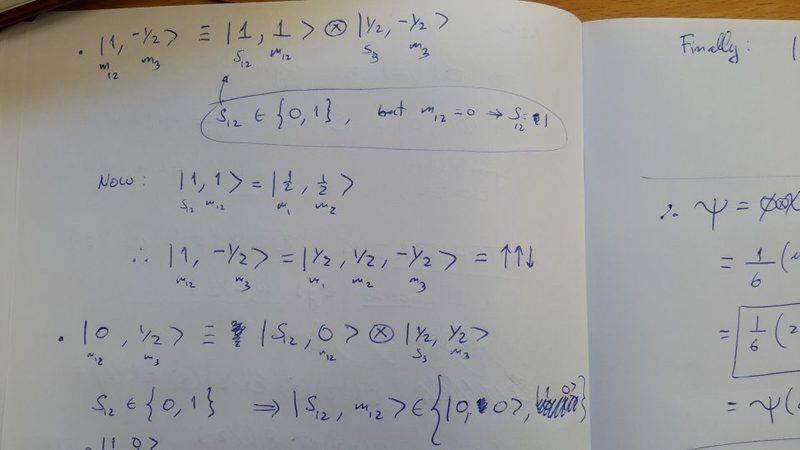 • |1, -1/2> ≡ |1, 1> ⊗ |1/2, -1/2>
m₁₂ m₃ S₁₂ m₁₂ S₃ m₃
S₁₂ ∈ {0, 1}, but m₁₂ = 0 → S₁₂ = 1
Now: |1, 1> = |1/2, 1/2>
S₁₂ m₁₂ m₁ m₂
∴ |1, -1/2> = |1/2, 1/2, -1/2> = ↑↑↓
m₁₂ m₃ m₁ m₂ m₃
• |0, 1/2> ≡ |S₁₂, 0> ⊗ |1/2, 1/2>
m₁₂ m₃ m₁₂ S₃ m₃
S₁₂ ∈ {0, 1} ⇒ |S₁₂, m₁₂> ∈ {|0, 0>, |1, 0>}
Finally: |
∴ ψ =
= 1/6 (
= 1/6 (2
= ψ(